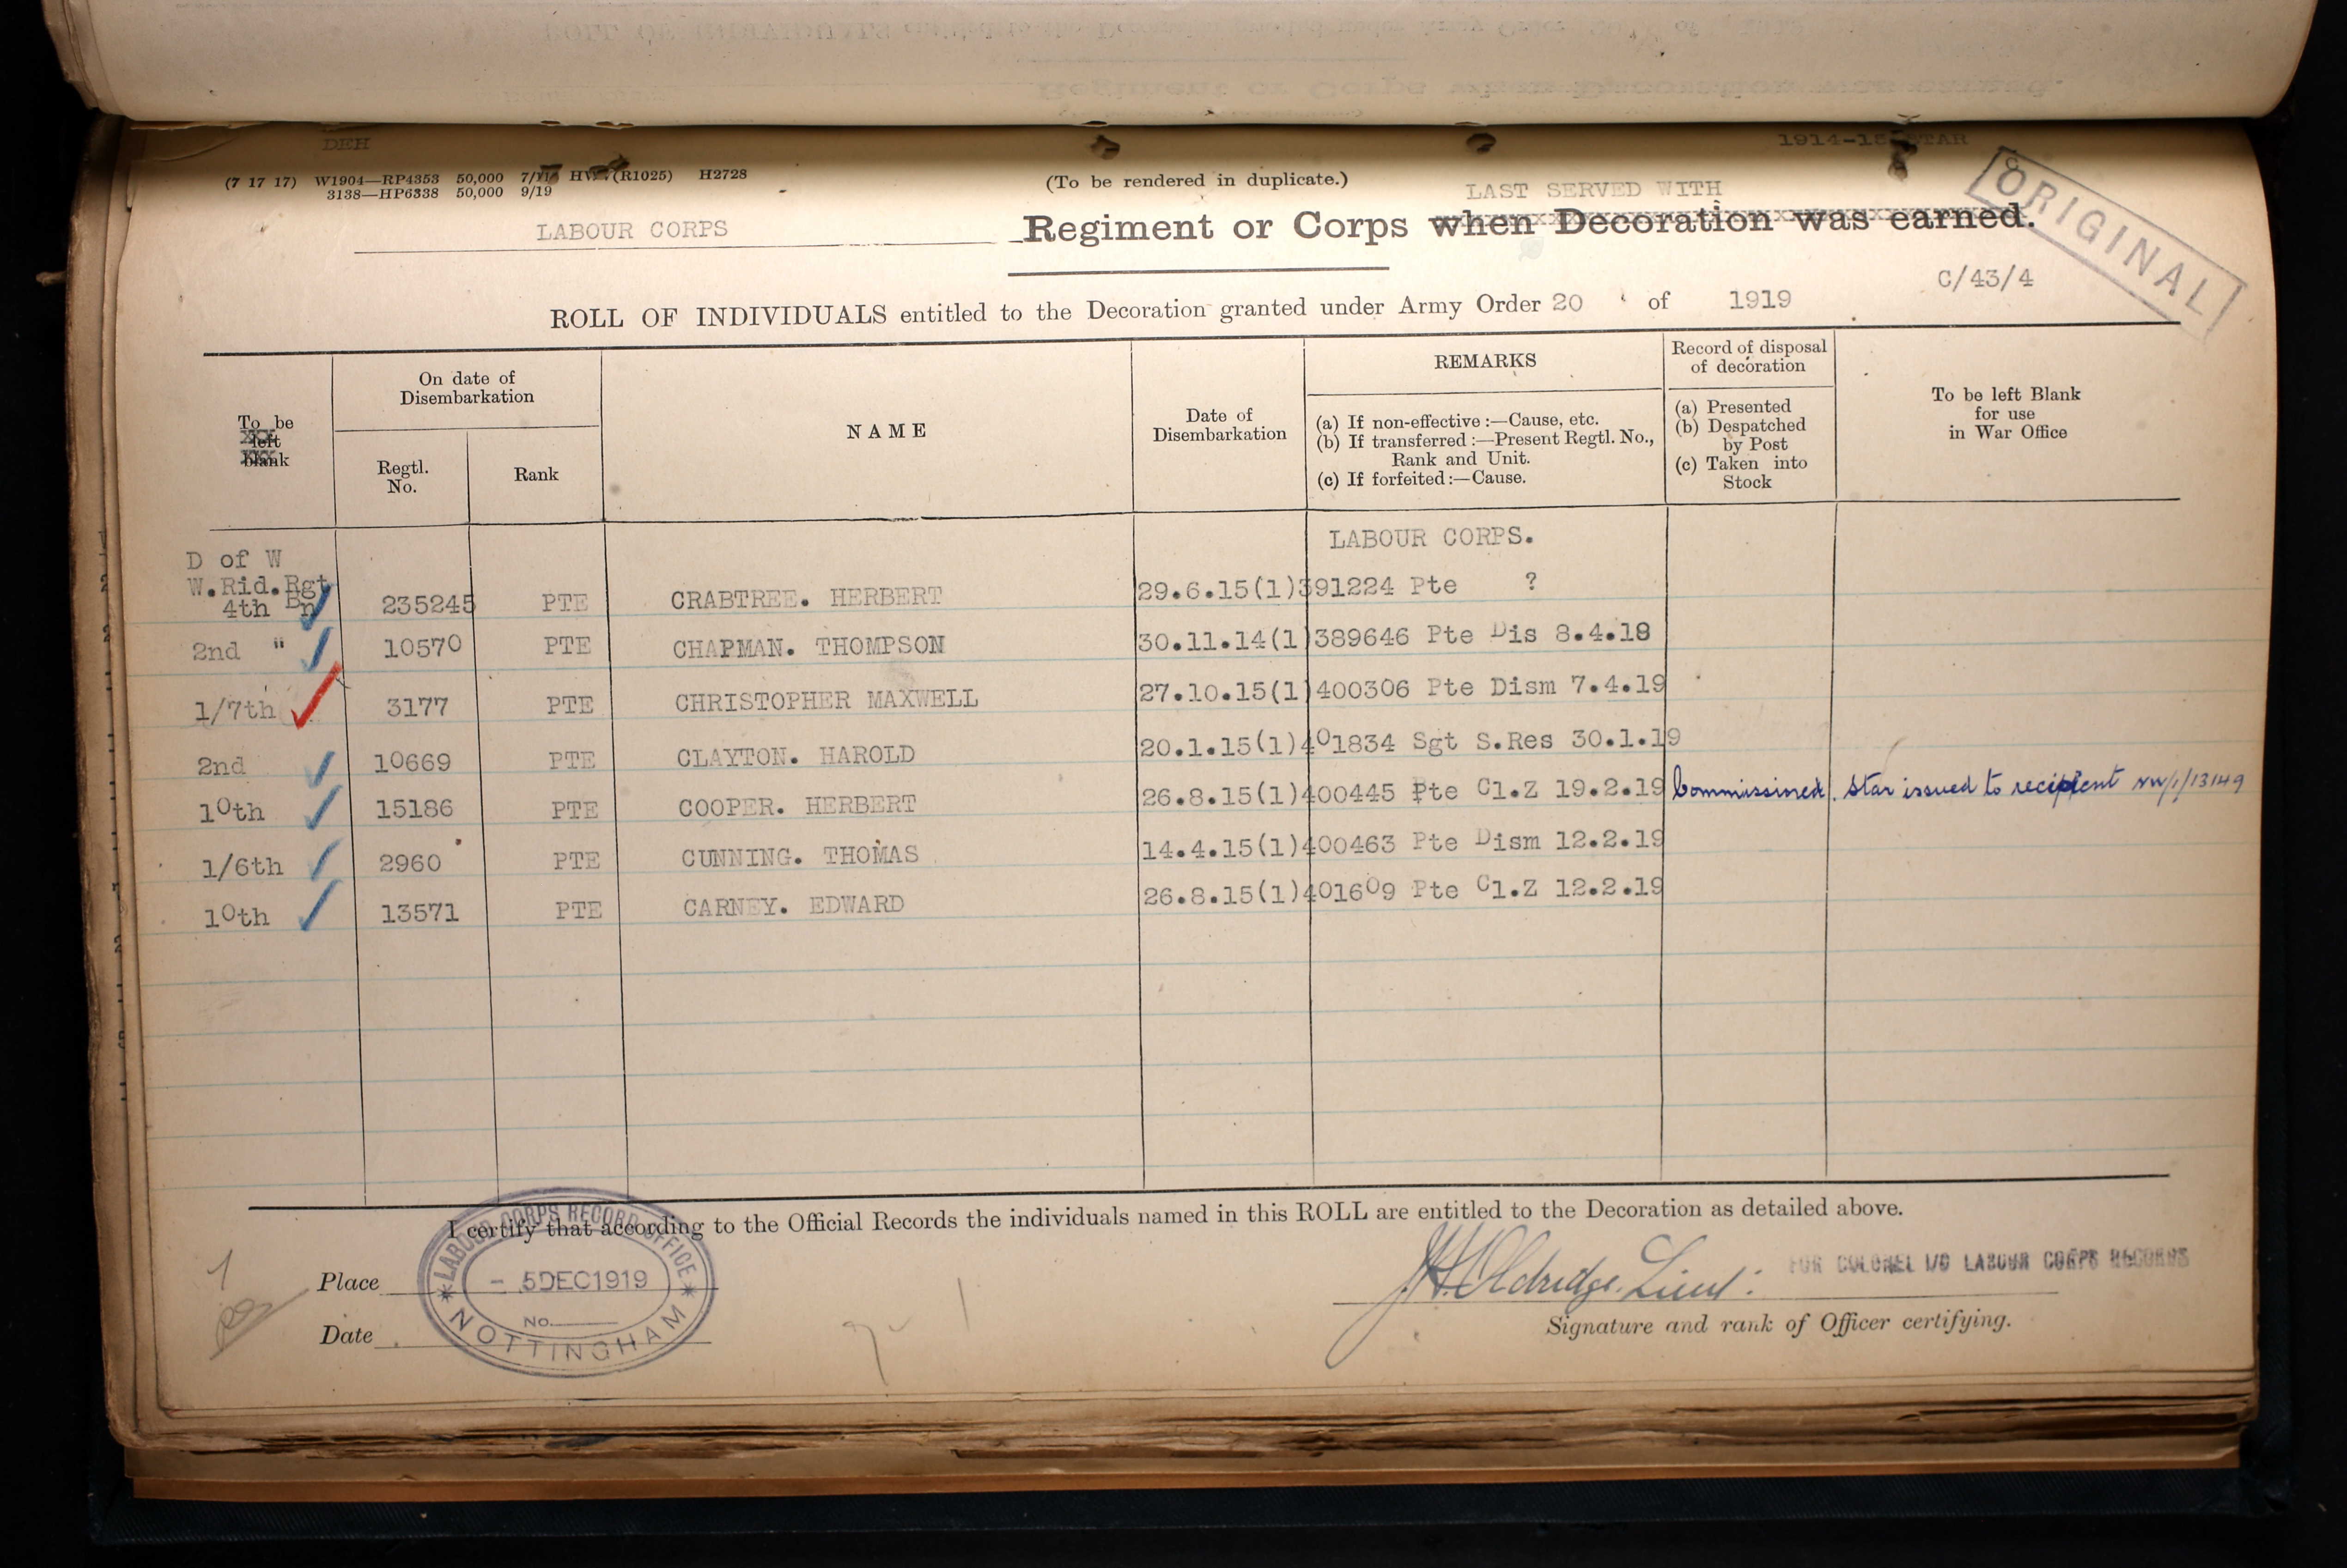 DEH
1914-15 STAR
(7 17 17) W1904—RP4353 50,000 7/19 (R1025) H2728
3138—HP6338 50,000 9/19
(To be rendered in duplicate.)
LAST SERVED WITH
ORIGINAL
LABOUR CORPS Regiment or Corps when Decoration was earned.
C/43/4
ROLL OF INDIVIDUALS entitled to the Decoration granted under Army Order 20 of 1919
To be left blank
On date of Disembarkation
Regtl. No.
Rank
NAME
Date of Disembarkation
REMARKS
(a) If non-effective :—Cause, etc.
(b) If transferred :—Present Regtl. No., Rank and Unit.
(c) If forfeited :—Cause.
Record of disposal of decoration
(a) Presented
(b) Despatched by Post
(c) Taken into Stock
To be left Blank for use in War Office
LABOUR CORPS.
D of W
W.Rid.Rgt
4th Bn 235245 PTE CRABTREE. HERBERT 29.6.15(1)391224 Pte ?
2nd " 10570 PTE CHAPMAN. THOMPSON 30.11.14(1)389646 Pte Dis 8.4.18
1/7th 3177 PTE CHRISTOPHER MAXWELL 27.10.15(1)400306 Pte Dism 7.4.19
2nd 10669 PTE CLAYTON. HAROLD 20.1.15(1)401834 Sgt S.Res 30.1.19
10th 15186 PTE COOPER. HERBERT 26.8.15(1)400445 Pte Cl.Z 19.2.19 Commissioned. Star issued to recipient NW/1/13149
1/6th 2960 PTE CUNNING. THOMAS 14.4.15(1)400463 Pte Dism 12.2.19
10th 13571 PTE CARNEY. EDWARD 26.8.15(1)401609 Pte Cl.Z 12.2.19
I certify that according to the Official Records the individuals named in this ROLL are entitled to the Decoration as detailed above.
LABOUR CORPS RECORD OFFICE
- 5 DEC 1919
No.
NOTTINGHAM
Place
Date
J.H. Oldridge. Lieut:
FOR COLONEL I/C LABOUR CORPS RECORDS
Signature and rank of Officer certifying.